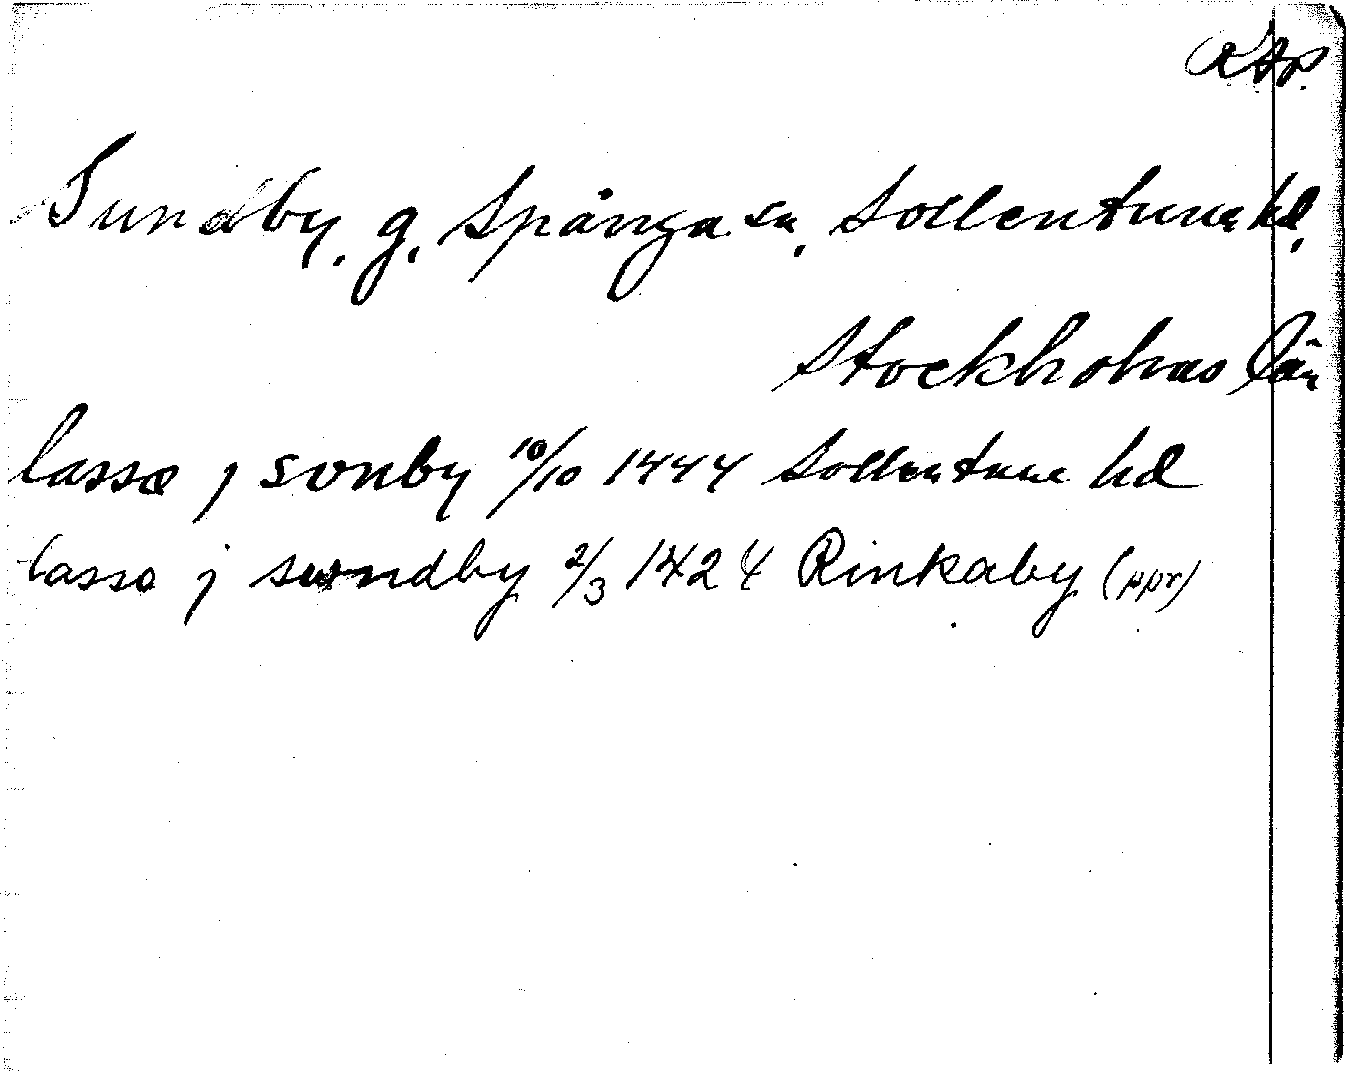 RAp.
Sundby, g. Spånga sn, Sollentuna hd,
Stockholms län
lasse j sonby 10/10 1444 Sollentuna hd
lasse j sundby 2/3 1424 Rinkaby (ppr)